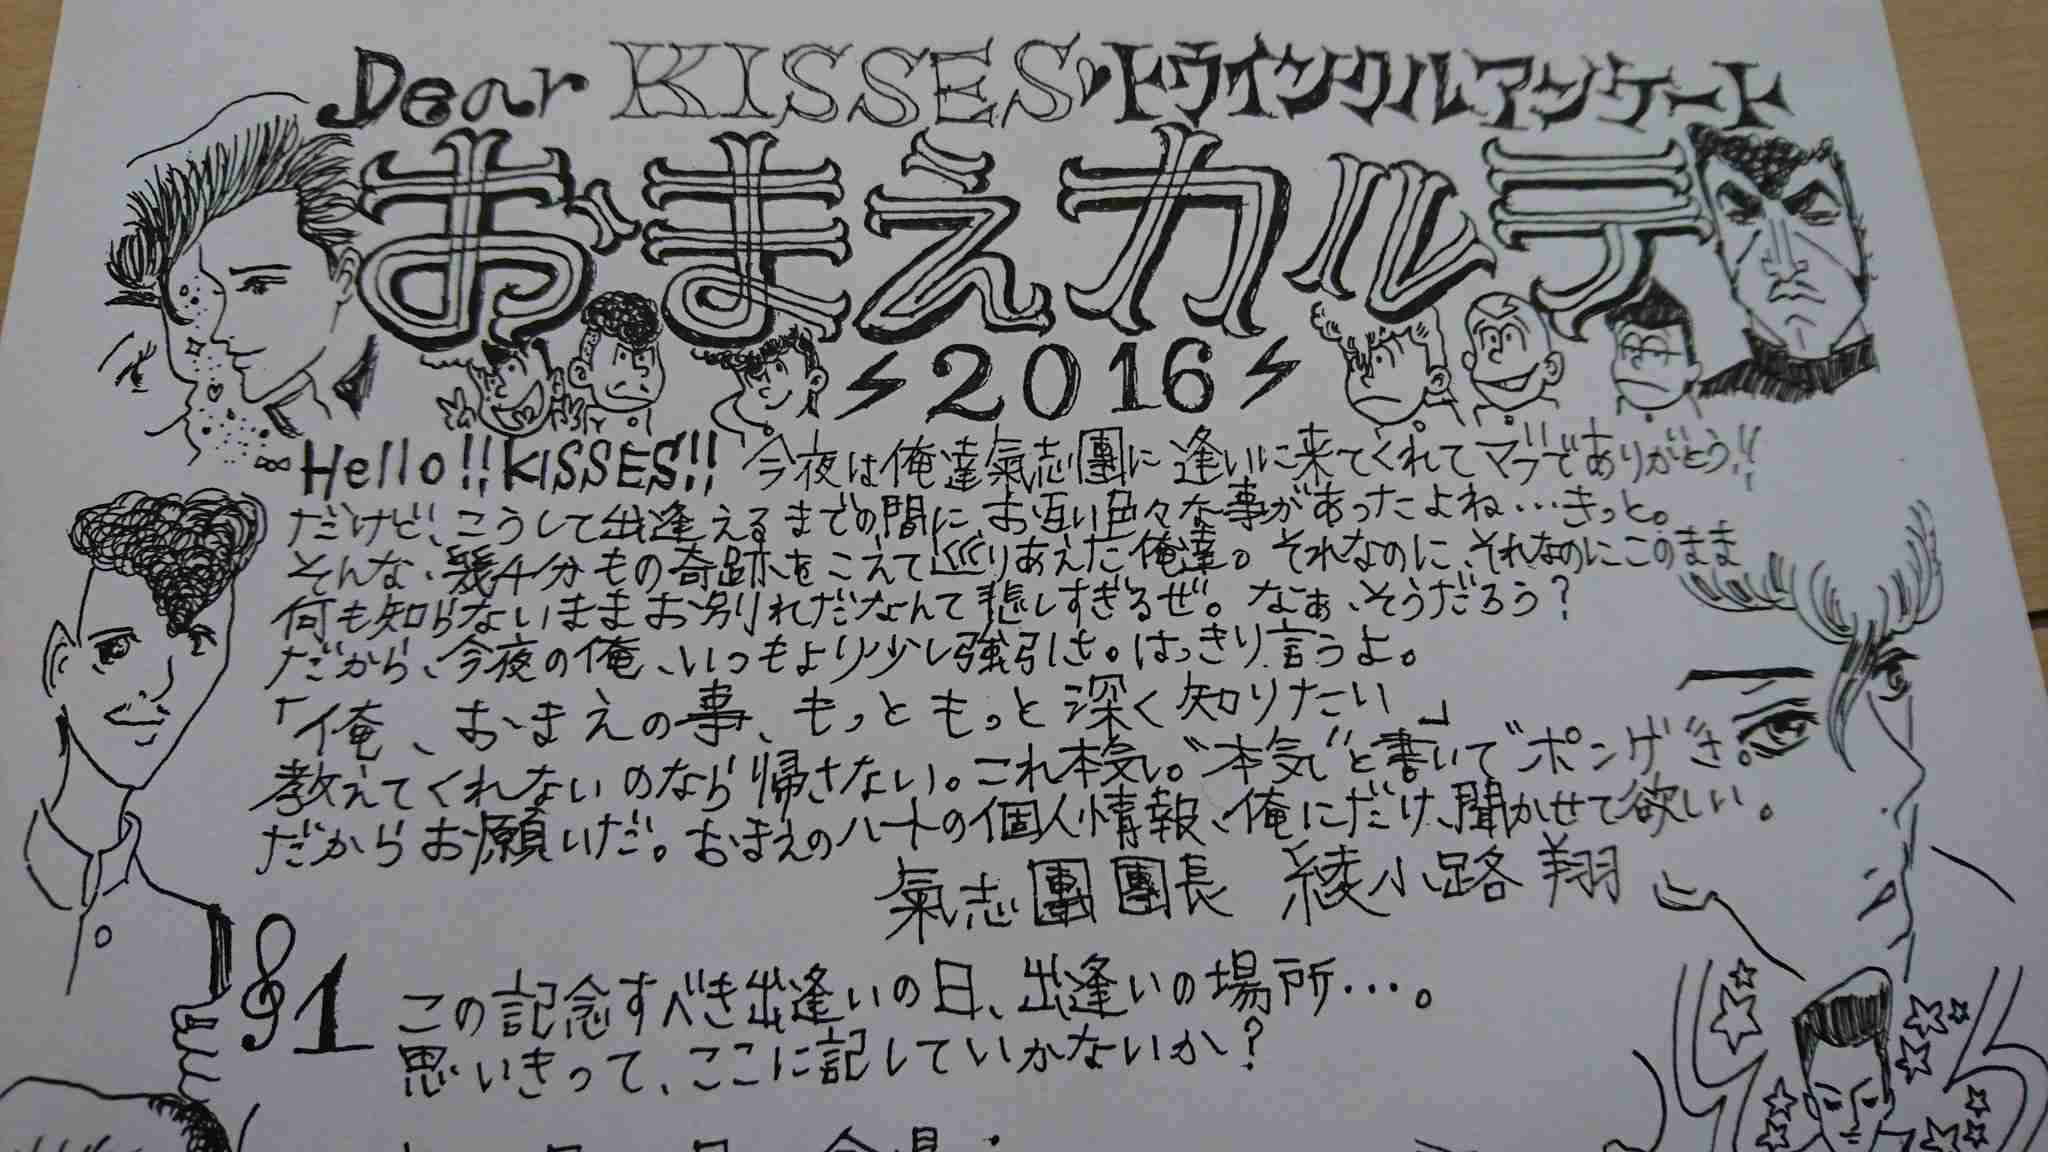 Dear KISSES♥トゥインクルアンケート
おまえカルテ
2016
Hello!!KISSES!! 今夜は俺達氣志團に逢いに来てくれてマブでありがとう!!
だけど、こうして出逢えるまでの間に、お互い色々な事があったよね…きっと。
そんな、幾千分もの奇跡をこえて巡りあえた俺達。それなのに、それなのにこのまま
何も知らないままお別れだなんて悲しすぎるぜ。なぁ、そうだろう?
だから、今夜の俺、いつもより少し強引さ。はっきり言うよ。
「俺、おまえの事、もっともっと深く知りたい」
教えてくれないのなら帰さない。これ本気。“本気”と書いて“ポンゲ”さ。
だからお願いだ。おまえのハートの個人情報、俺にだけ、聞かせて欲しい。
氣志團團長 綾小路 翔
1 この記念すべき出逢いの日、出逢いの場所…。
思いきって、ここに記していかないか?